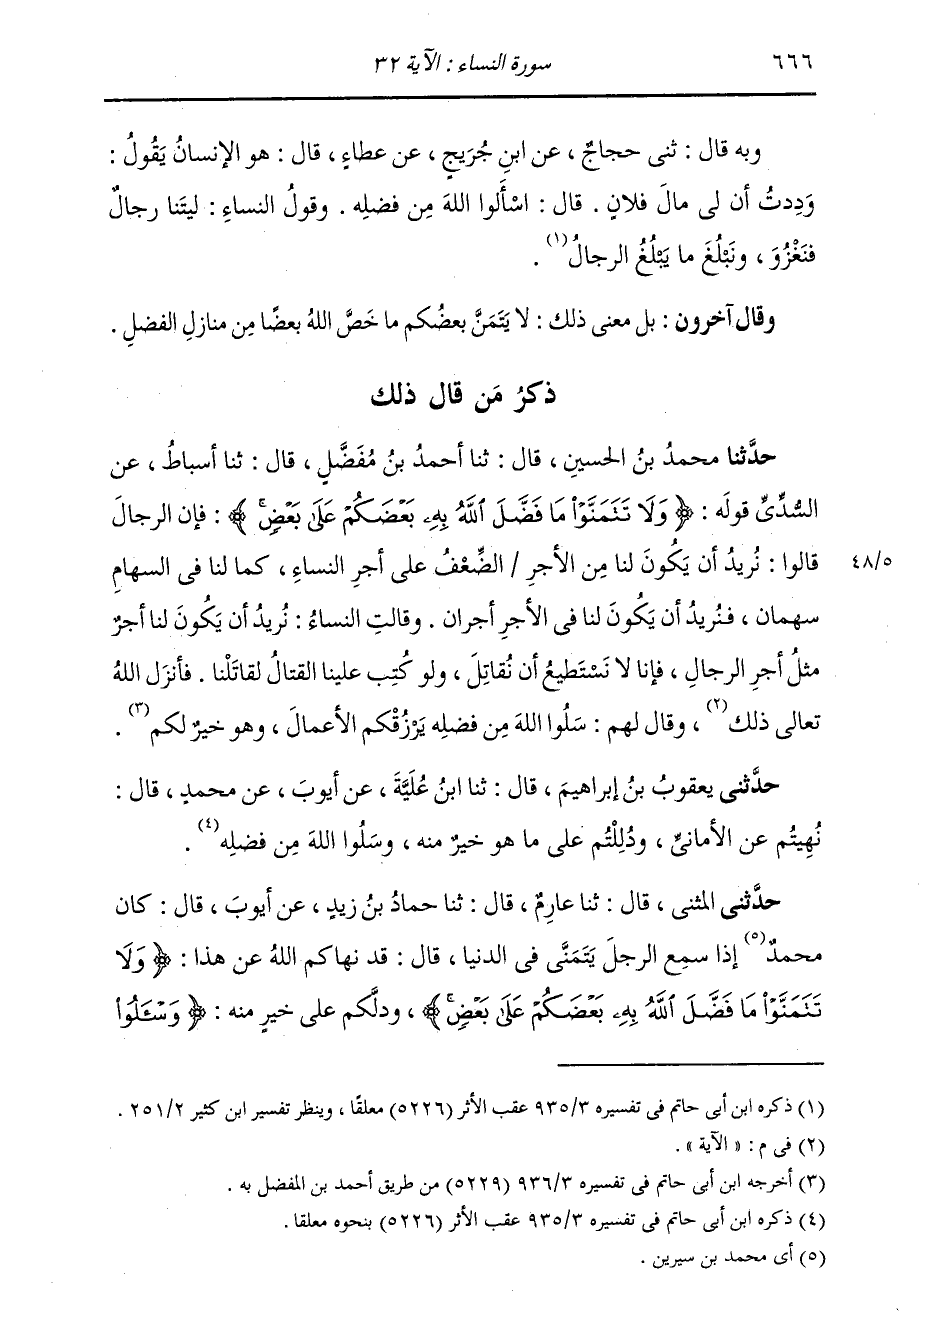 ٦٦٦
سورة النساء : الآية ٣٢
وبه قال : ثنى حجاجٌ ، عن ابنِ جُرَيجٍ ، عن عطاءٍ ، قال : هو الإنسانُ يَقُولُ :
وَدِدتُ أن لى مالَ فلانٍ . قال : اسْأَلوا اللهَ مِن فضلِه . وقولُ النساءِ : ليتَنا رجالٌ
فنَغْزُوَ ، ونَبْلُغَ ما يَبْلُغُ الرجالُ(١) .
وقال آخرون : بل معنى ذلك : لا يَتَمَنَّ بعضُكم ما خَصَّ اللهُ بعضًا مِن منازلِ الفضلِ .
ذكرُ مَن قال ذلك
حدَّثنا محمدُ بنُ الحسينِ ، قال : ثنا أحمدُ بنُ مُفَضَّلٍ ، قال : ثنا أسباطُ ، عن
السُّدِّىِّ قولَه : ﴿ وَلَا تَتَمَنَّوْا۟ مَا فَضَّلَ ٱللَّهُ بِهِۦ بَعْضَكُمْ عَلَىٰ بَعْضٍۚ ﴾ : فإن الرجالَ
قالوا : نُريدُ أن يَكُونَ لنا مِن الأجرِ / الضِّعْفُ على أجرِ النساءِ ، كما لنا فى السهامِ
٤٨/٥
سهمان ، فنُريدُ أن يَكُونَ لنا فى الأجرِ أجران . وقالتِ النساءُ : نُريدُ أن يَكُونَ لنا أجرٌ
مثلُ أجرِ الرجالِ ، فإنا لا نَسْتَطيعُ أن نُقاتِلَ ، ولو كُتِب علينا القتالُ لقاتَلْنا . فأنزَل اللهُ
تعالى ذلك(٢) ، وقال لهم : سَلُوا اللهَ مِن فضلِه يَرْزُقْكم الأعمالَ ، وهو خيرٌ لكم(٣) .
حدَّثنى يعقوبُ بنُ إبراهيمَ ، قال : ثنا ابنُ عُلَيَّةَ ، عن أيوبَ ، عن محمدٍ ، قال :
نُهِيتُم عن الأمانىِّ ، ودُلِلْتُم على ما هو خيرٌ منه ، وسَلُوا اللهَ مِن فضلِه(٤) .
حدَّثنى المثنى ، قال : ثنا عارمٌ ، قال : ثنا حمادُ بنُ زيدٍ ، عن أيوبَ ، قال : كان
محمدٌ(٥) إذا سمِع الرجلَ يَتَمَنَّى فى الدنيا ، قال : قد نهاكم اللهُ عن هذا : ﴿ وَلَا
تَتَمَنَّوْا۟ مَا فَضَّلَ ٱللَّهُ بِهِۦ بَعْضَكُمْ عَلَىٰ بَعْضٍۚ ﴾ ، ودلَّكم على خيرٍ منه : ﴿ وَسْـَٔلُوا۟
(١) ذكره ابن أبى حاتم فى تفسيره ٩٣٥/٣ عقب الأثر (٥٢٢٦) معلقًا ، وينظر تفسير ابن كثير ٢٥١/٢ .
(٢) فى م : « الآية » .
(٣) أخرجه ابن أبى حاتم فى تفسيره ٩٣٦/٣ (٥٢٢٩) من طريق أحمد بن المفضل به .
(٤) ذكره ابن أبى حاتم فى تفسيره ٩٣٥/٣ عقب الأثر (٥٢٢٦) بنحوه معلقا .
(٥) أى محمد بن سيرين .